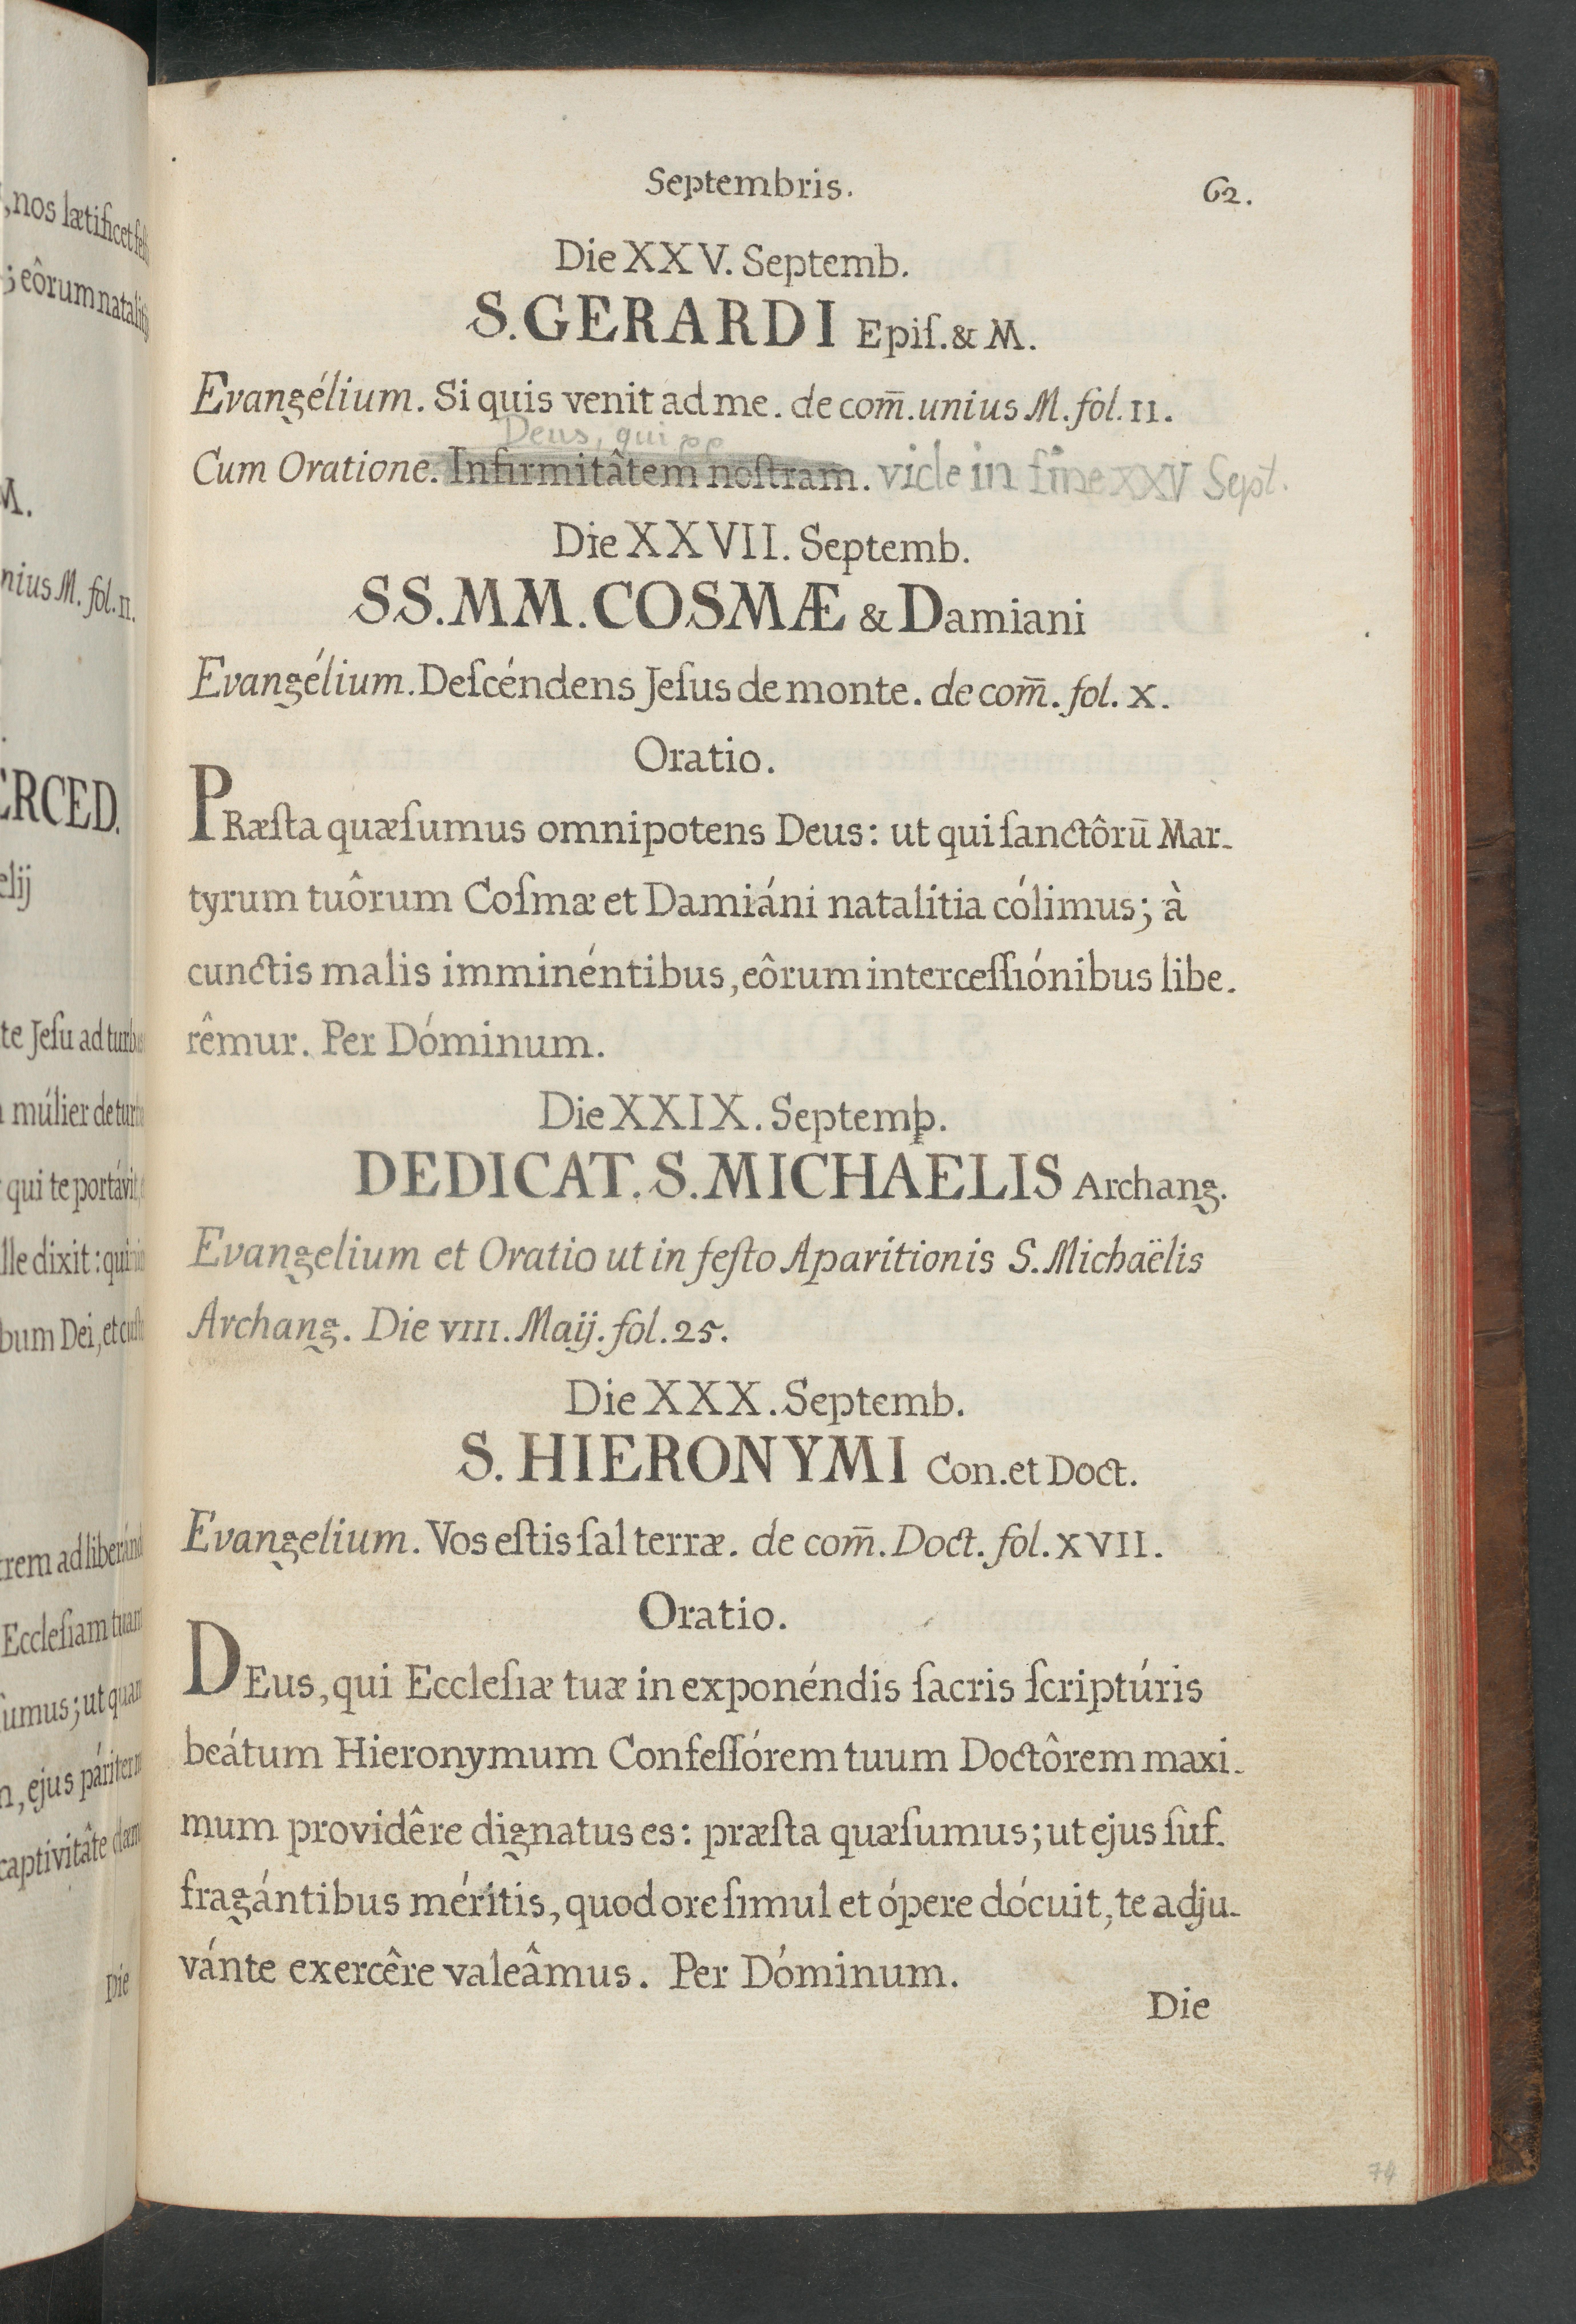 , nos lætificet
; eôrum natali
M.
nius M. fol. II.
ERCED.
elij
te Jeſu ad turb
múlier de tur
qui te portávit
lle dixit: qui
bum Dei, et cuſt
rem ad liberánd
Eccleſiam tuam
ſumus; ut quam
, ejus páriter
captivitâte
Die
Septembris.
62.
Die XXV. Septemb.
S. GERARDI Epiſ. & M.
Evangélium. Si quis venit ad me. de com̄. unius M. fol. II.
Deus, qui
Cum Oratione. Infirmitâtem noſtram. vide in fine XXV Sept.
Die XXVII. Septemb.
SS. MM. COSMÆ & Damiani
Evangélium. Deſcéndens Jeſus de monte. de com̄. fol. X.
Oratio.
PRæſta quæſumus omnipotens Deus: ut qui ſanctôrū Mar-
tyrum tuôrum Coſmæ et Damiáni natalítia cólimus; à
cunctis malis imminéntibus, eôrum interceſſiónibus libe-
rêmur. Per Dóminum.
Die XXIX. Septemb.
DEDICAT. S. MICHAELIS Archang.
Evangelium et Oratio ut in feſto Aparitionis S. Michaëlis
Archang. Die VIII. Maij. fol. 25.
Die XXX. Septemb.
S. HIERONYMI Con. et Doct.
Evangelium. Vos eſtis ſal terræ. de com̄. Doct. fol. XVII.
Oratio.
DEus, qui Eccleſiæ tuæ in exponéndis ſacris ſcriptúris
beátum Hieronymum Confeſſórem tuum Doctôrem maxi-
mum providêre dignatus es: præſta quæſumus; ut ejus ſuf-
fragántibus méritis, quod ore ſimul et ópere dócuit, te adju-
vánte exercêre valeâmus. Per Dóminum.
Die
74